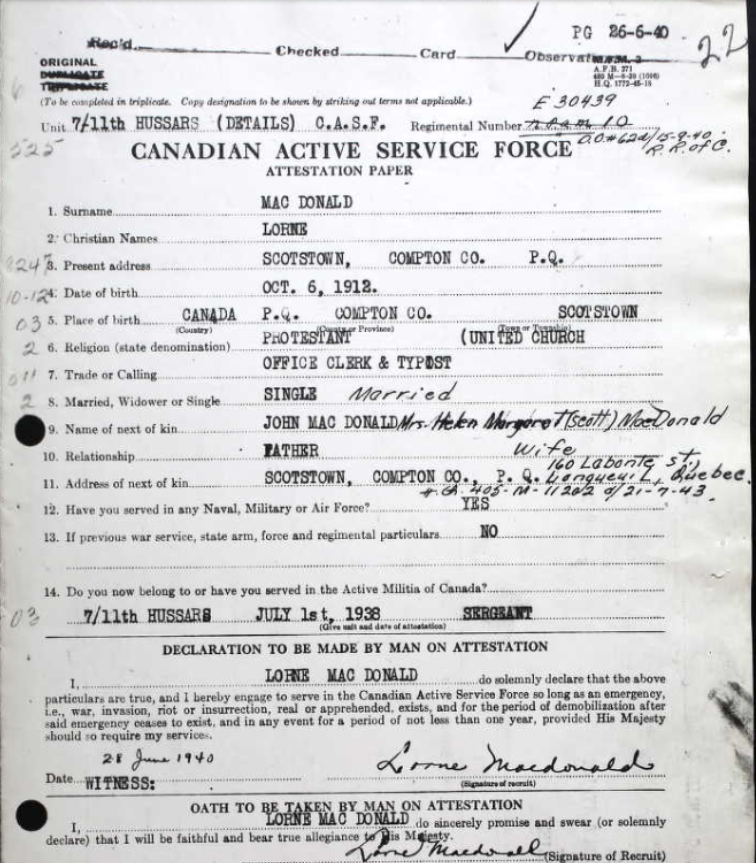 PG 26-6-40 22
Rec'd. Checked Card Observat
ORIGINAL
DUPLICATE
TRIPLICATE
M.F.M. 2
A.F.B. 271
H.Q. 1772-45-18
(To be completed in triplicate. Copy designation to be shown by striking out terms not applicable.)
E 30439
Unit 7/11th HUSSARS (DETAILS) C.A.S.F. Regimental Number
D.O.#62d/15-9-40
R.R. of C.
525
CANADIAN ACTIVE SERVICE FORCE
ATTESTATION PAPER
1. Surname MAC DONALD
2. Christian Names LORNE
3. Present address SCOTSTOWN, COMPTON CO. P.Q.
10-12 4. Date of birth OCT. 6, 1912.
03 5. Place of birth CANADA P.Q. COMPTON CO. SCOTSTOWN
(Country) (County or Province) (Town or Township)
2 6. Religion (state denomination) PROTESTANT (UNITED CHURCH
011 7. Trade or Calling OFFICE CLERK & TYPOST
2 8. Married, Widower or Single SINGLE Married
9. Name of next of kin JOHN MAC DONALD Mrs. Helen Margaret (Scott) MacDonald
10. Relationship FATHER Wife
160 Labonte St,
11. Address of next of kin SCOTSTOWN, COMPTON CO., P. Q. Longueuil, Quebec.
405-M-11202 d/21-7-43.
12. Have you served in any Naval, Military or Air Force? YES
13. If previous war service, state arm, force and regimental particulars NO
14. Do you now belong to or have you served in the Active Militia of Canada?
03 7/11th HUSSARS JULY 1st, 1938 SERGEANT
(Give unit and date of attestation)
DECLARATION TO BE MADE BY MAN ON ATTESTATION
I, LORNE MAC DONALD do solemnly declare that the above
particulars are true, and I hereby engage to serve in the Canadian Active Service Force so long as an emergency,
i.e., war, invasion, riot or insurrection, real or apprehended, exists, and for the period of demobilization after
said emergency ceases to exist, and in any event for a period of not less than one year, provided His Majesty
should so require my services.
28 June 1940 Lorne Macdonald
Date (Signature of recruit)
WITNESS:
OATH TO BE TAKEN BY MAN ON ATTESTATION
I, LORNE MAC DONALD do sincerely promise and swear (or solemnly
declare) that I will be faithful and bear true allegiance to His Majesty.
Lorne Macdonald (Signature of Recruit)